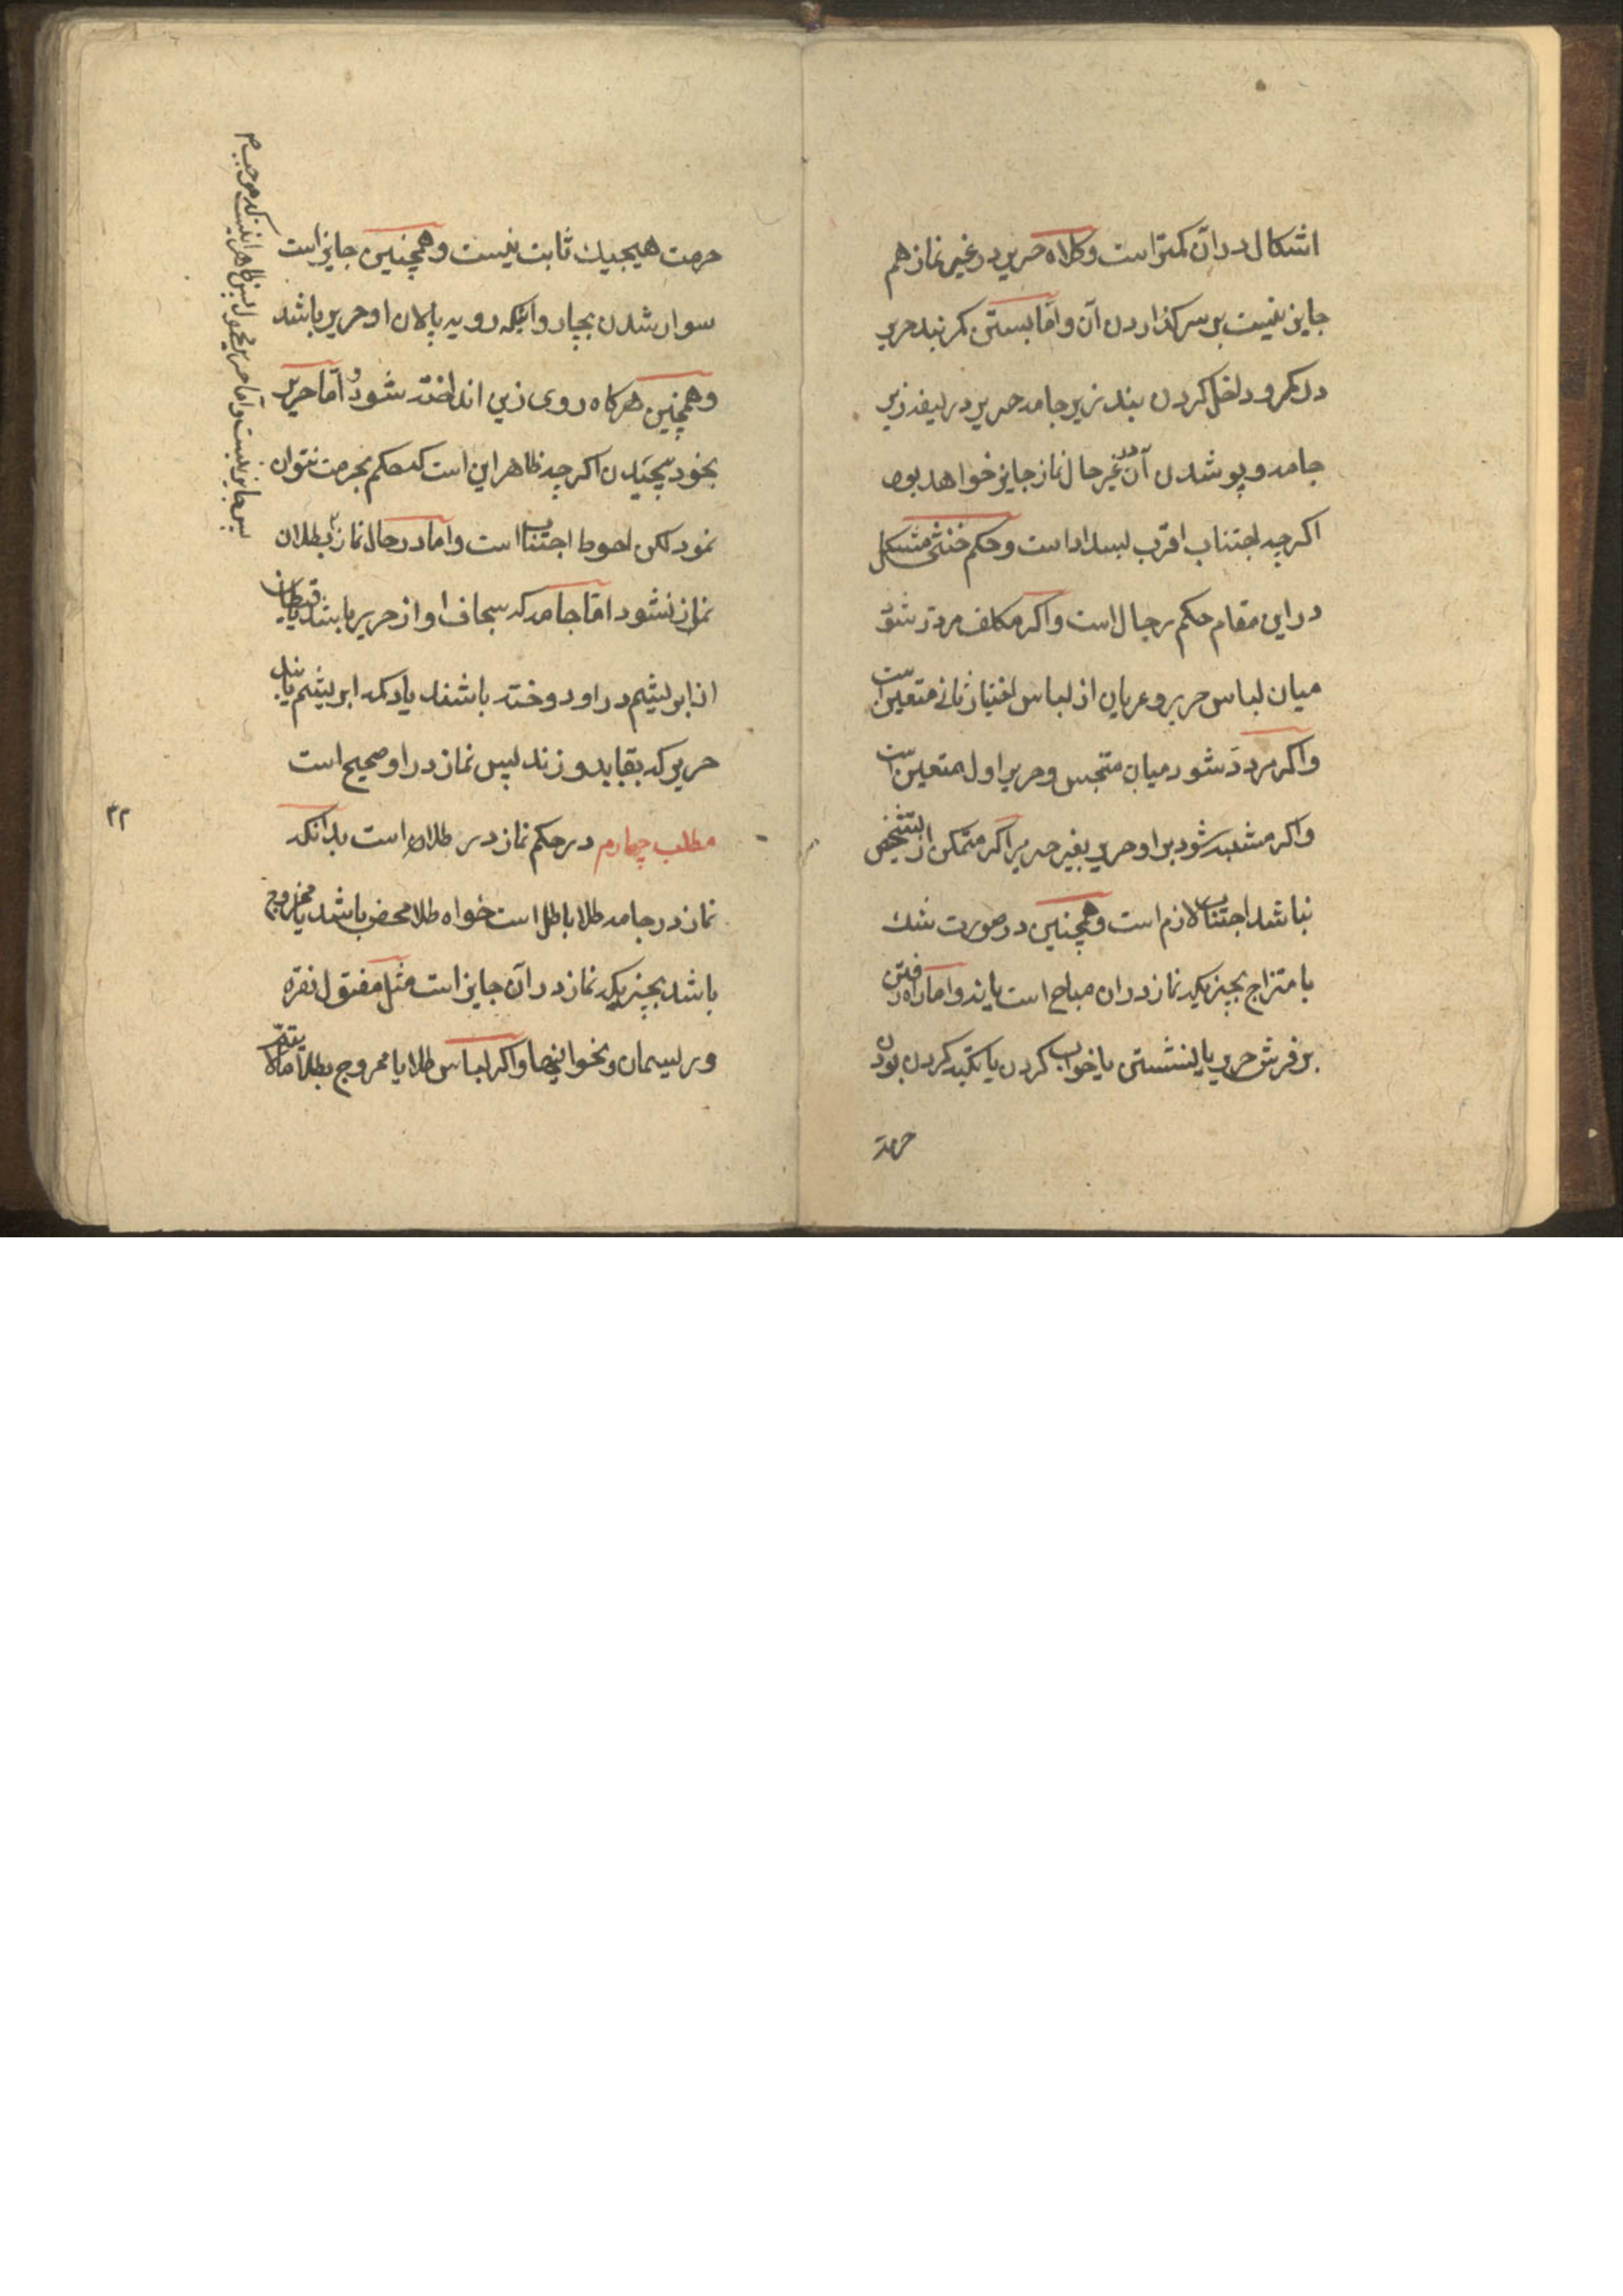 اشکال دران کمتر است و کلاه حریر در غیر نماز هم
جایز نیست بر سر کذاردن آن و اما بستن کمر بند حریر
در کمر و داخل کردن بند زیر جامه حریر در لیفه زیر
جامه و پوشدن آن در غیر حال نماز جایز خواهد بود
اکرچه اجتناب اقرب لبسداد است و حکم خنثی مشکل
در این مقام حکم رجال است و اکر مکلف مردد شود
میان لباس حریر و عریان از لباس اختیار ثانی متعین است
و اکر مردد شود میان متنجس و حریر اول متعین است
و اکر مشتبه شود بر او حریر بغیر حریر اکر متمکن از تشخیص
نباشد اجتناب لازم است و همچنین در صورت شك
بامتزاج بچیزیکه نماز دران مباح است یا نه و اما راه رفتن
بر فرش حریر یا نشستن یا خواب کردن یا تکیه کردن بودن
حرمة
حرمت هیچیك ثابت نیست و همچنین جایز است
سوار شدن بچاروائیکه رویه پالان او حریر باشد
و همچنین هرکاه روی زین انداخته شود و اما حریر
بخود پیچیدن اکرچه ظاهر این است که حکم بحرمت نتوان
نمود لکن احوط اجتناب است و اما در حال نماز بطلان
نماز نشود اما جامه که سجاف او از حریر باشد یا قیطان
از ابریشم در او دوخته باشند یا دکمه ابریشم یا بند
حریر که بقبا بدوزند پس نماز در او صحیح است
مطلب چهارم در حکم نماز در طلا است بدانکه
نماز در جامه طلا باطل است خواه طلا محض باشد یا ممزوج
باشد بچیزیکه نماز در آن جایز است مثل مفتول نقره
و ریسمان و نحو اینها و اکر لباس طلا یا ممزوج بطلا
۳۲